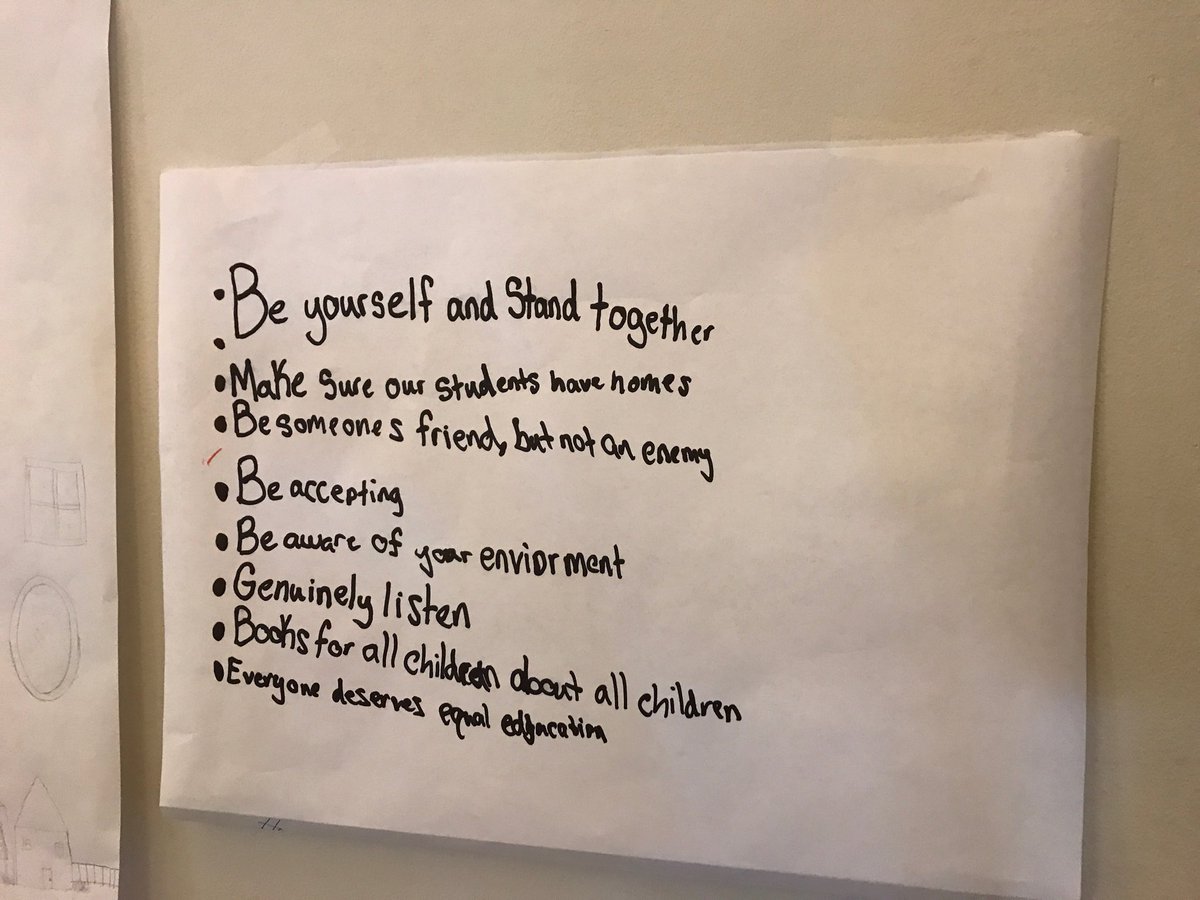 • Be yourself and Stand together
•
• Make sure our students have homes
• Be someones friend, but not an enemy
• Be accepting
• Be aware of your enviorment
• Genuinely listen
• Books for all children about all children
• Everyone deserves equal edjucation